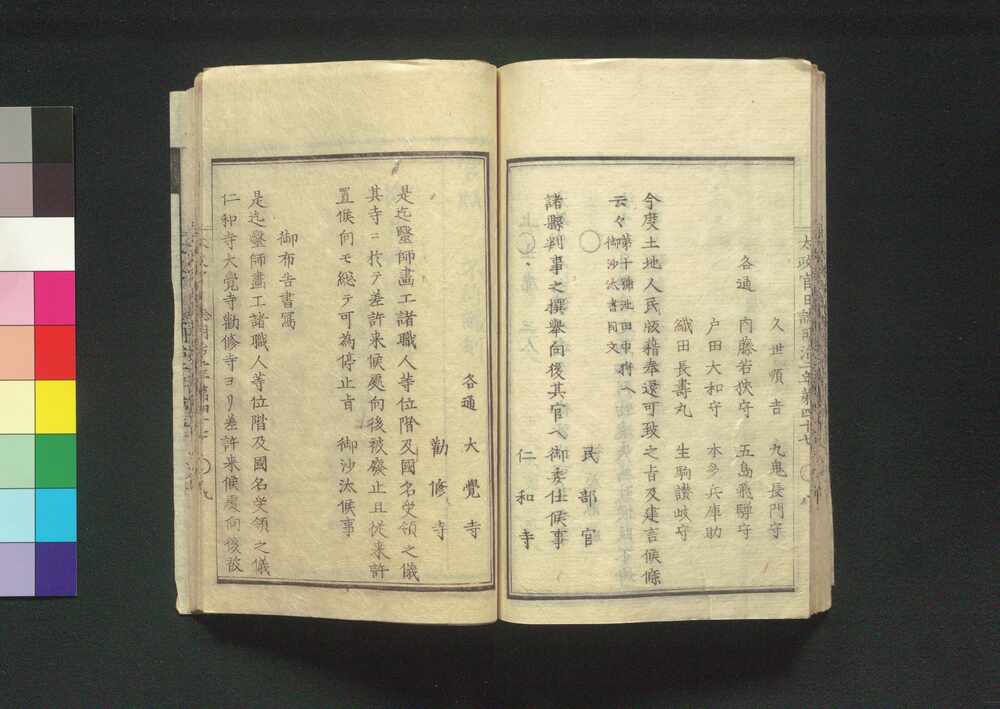 太政官日誌明治二年第四十七
八
久世順吉 九鬼長門守
各通 内藤若狹守 五島飛驒守
戸田大和守 本多兵庫助
織田長壽丸 生駒讃岐守
今度土地人民版籍奉還可致之旨及建言候條
云々
第十彌池田中將ヘ
御沙汰書同文
〇
民部官
諸縣判事之撰擧向後其官ヘ御委任候事
仁和寺
各通 大覺寺
勸修寺
是迄醫師畫工諸職人等位階及國名受領之儀
其寺ニ於テ差許来候處向後被廢止且従来許
置候向モ総テ可為停止旨 御沙汰候事
御布告書寫
是迄醫師畫工諸職人等位階及國名受領之儀
仁和寺大覺寺勸修寺ヨリ差許来候處向後被
九